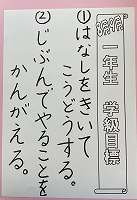 一年生　学級目標
①はなしをきいて
こうどうする。
②じぶんでやることを
かんがえる。